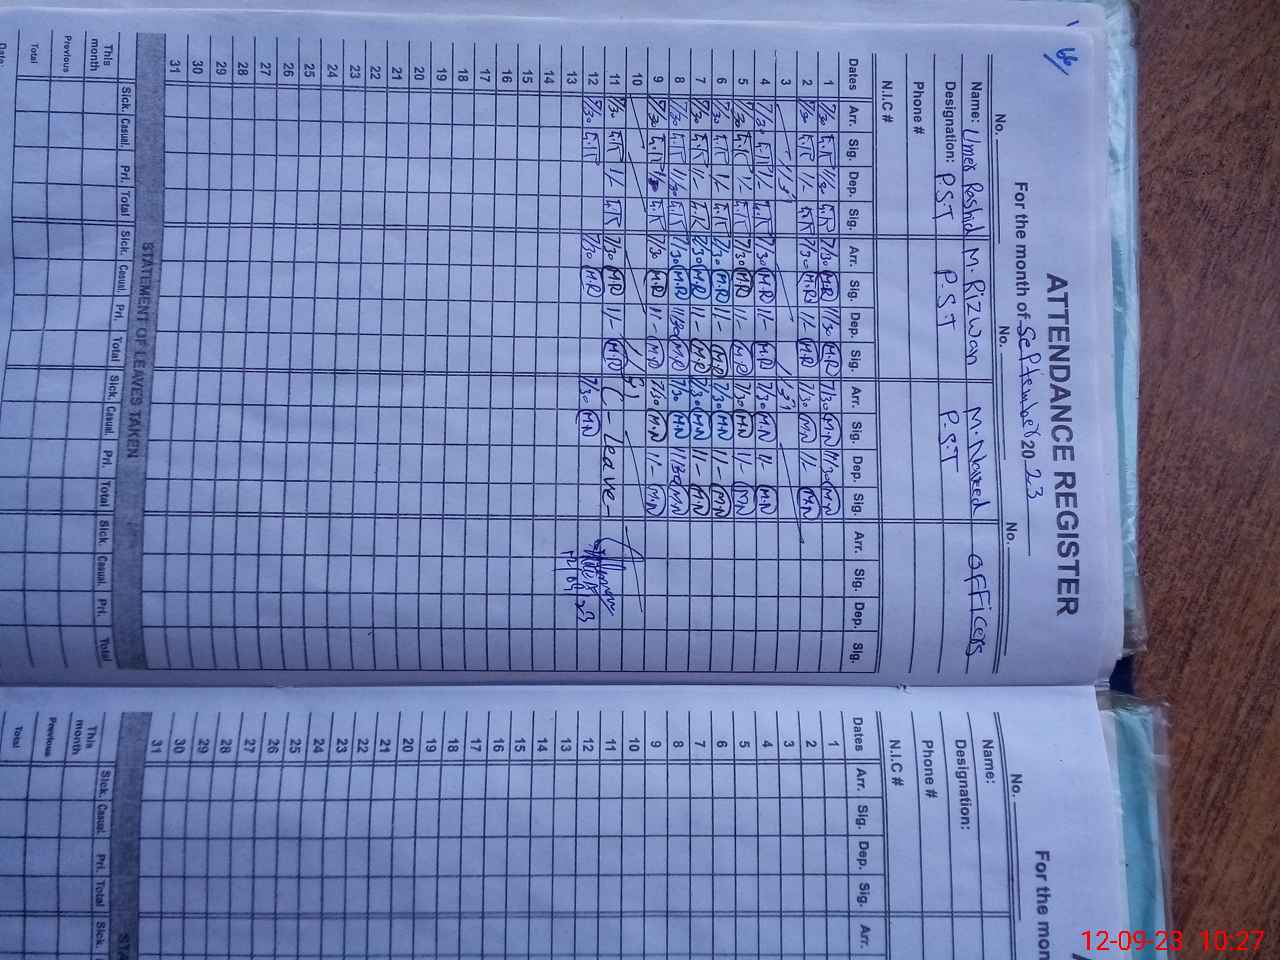 66
ATTENDANCE REGISTER
For the month of September 2023
No. No. No.
Name: Umer Rashid M. Rizwan M. Naveed officers
Designation: P.S.T P.S.T P.S.T
Phone #
N.I.C #
Dates Arr. Sig. Dep. Sig. Arr. Sig. Dep. Sig. Arr. Sig. Dep. Sig. Arr. Sig. Dep. Sig.
1 7/30 11/30 7/30 M.R 11/30 M.R 7/30 M.N 11/30 M.N
2 7/30 1/- 7/30 M.R 1/- M.R 7/30 M.N 1/- M.N
3
4 7/30 1/- 7/30 M.R 1/- M.R 7/30 M.N 1/- M.N
5 7/30 1/- 7/30 M.R 1/- M.R 7/30 M.N 1/- M.N
6 7/30 1/- 7/30 M.R 1/- M.R 7/30 M.N 1/- M.N
7 7/30 1/- 7/30 M.R 1/- M.R 7/30 M.N 1/- M.N
8 7/30 11/30 7/30 M.R 11/30 M.R 7/30 M.N 11/30 M.N
9 7/30 7/30 M.R 1/- M.R 7/30 M.N 1/- M.N
10
11 7/30 1/- 7/30 M.R 1/- M.R C-Leave-
12 7/30 7/30 M.R 7/30 M.N
13
14
15
16
17
18
19
20
21
22
23
24
25
26
27
28
29
30
31
STATEMENT OF LEAVES TAKEN
Sick. Casual. Pri. Total Sick. Casual. Pri. Total Sick. Casual. Pri. Total Sick. Casual. Pri. Total
This month
Previous
Total
Date:
For the mon
No.
Name:
Designation:
Phone #
N.I.C #
Dates Arr. Sig. Dep. Sig. Arr.
1
2
3
4
5
6
7
8
9
10
11
12
13
14
15
16
17
18
19
20
21
22
23
24
25
26
27
28
29
30
31
STA
Sick. Casual. Pri. Total Sick.
This month
Previous
Total
12-09-23 10:27